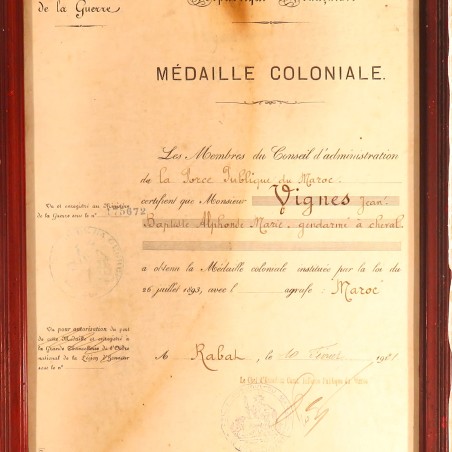 de la Guerre
République Française
MÉDAILLE COLONIALE.
Les Membres du Conseil d'administration
de la Force Publique du Maroc
certifient que Monsieur Vignes Jean
Baptiste Alphonse Marie, gendarme à cheval
a obtenu la Médaille coloniale instituée par la loi du
26 juillet 1893, avec l' agrafe : Maroc
Vu et enregistré au Ministère
de la Guerre sous le n°
Vu pour autorisation du port
de cette Médaille et enregistré à
la Grande Chancellerie de l'Ordre
national de la Légion d'Honneur
sous le n°
A Rabat, le 10